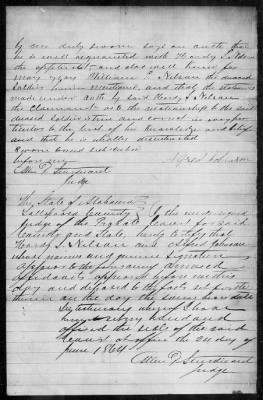 by me duly sworn says on oath that
he is well acquainted with Hardy S. Nelson
the applicant and also well knew for
many years William S. Nelson the deceased
Soldier herein mentioned, and that the statement
made under oath by said Hardy S. Nelson
the claimant as to the relationship to the said
deceased Soldier is true and correct in every par-
ticular to the best of his knowledge and belief
and that he is wholly disinterested
Sworn and subscribed
before me
Judge
The State of Alabama
County } I the undersigned
Judge of the Probate Court for said
County and State, hereby certify that
Hardy S. Nelson and Johnson
whose names and genuine Signatures
appear to the foregoing annexed
affidavits appeared before me this
day and deposed to the facts set forth
therein on the day the same bear date
In testimony whereof I have
hereunto my hand and
affixed the seal of the said
Court at office the day of
June 1864
Judge